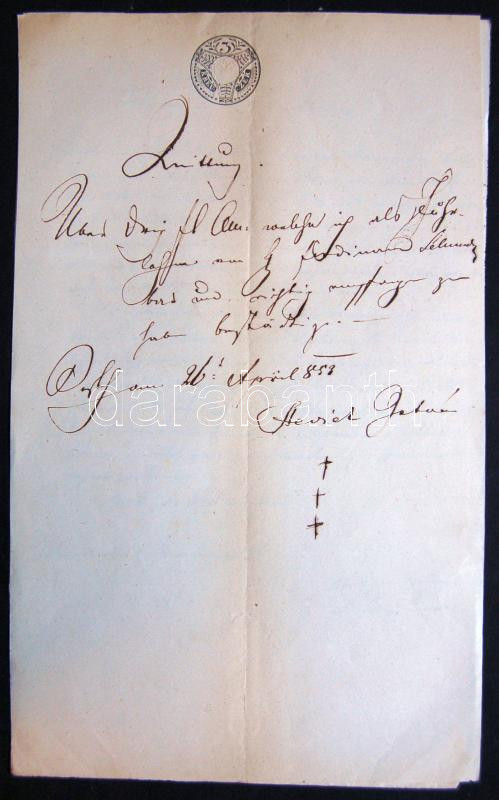 3
Quittung.
Über drei fl CM: welche ich als Fuhr-
lohn von H Ferdinand
bar und richtig empfangen zu
haben bestättige.
Pesth am 26t April 858
István
+
+
+
darabanth